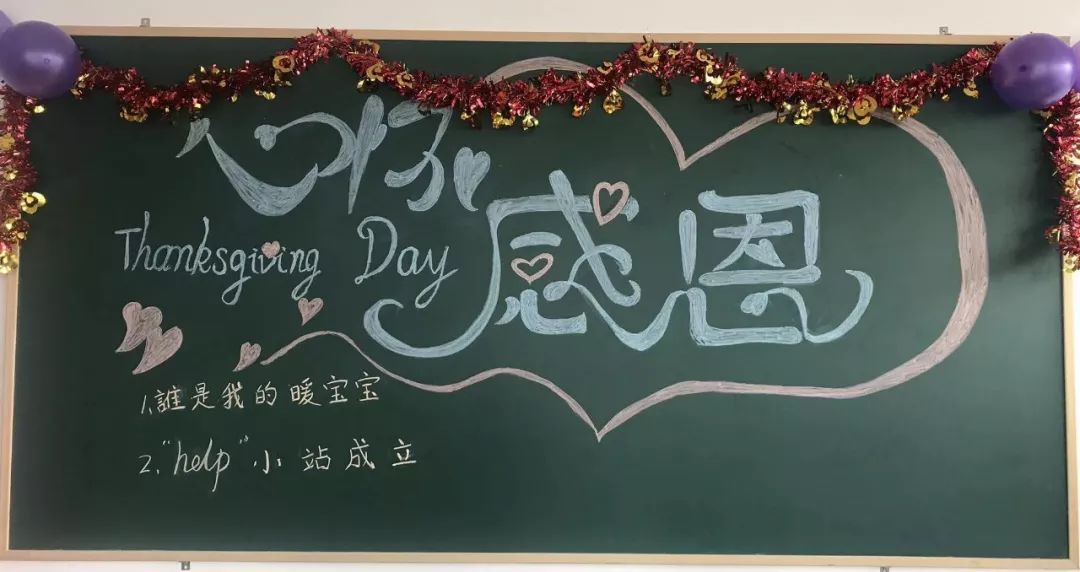 心怀
感恩
Thanksgiving Day
1.誰是我的暖宝宝
2."help"小站成立